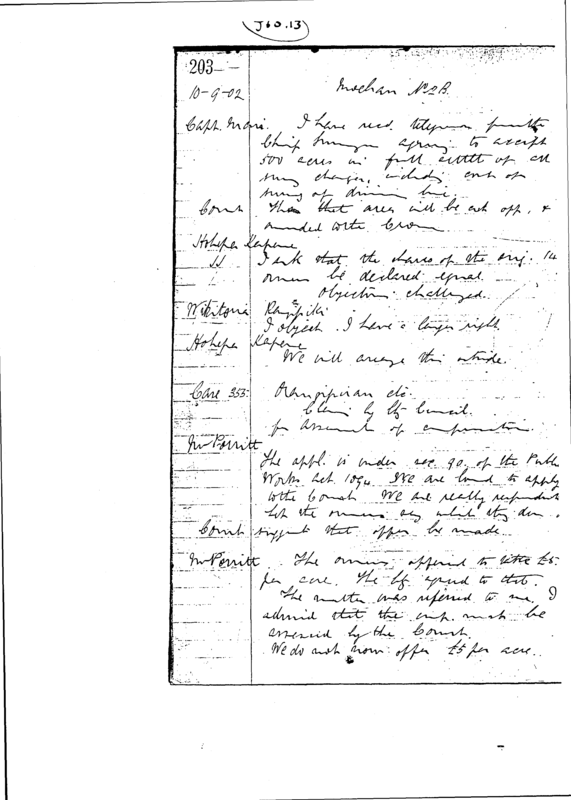 J60.13
203
10-9-02
Moehau No 2B.
Capt. Mair. I have recd. telegram from the
Chief Surveyor agreeing to accept
500 acres in full settlt of all
survey charges, including cost of
survey of division line.
Court That area will be cut off, &
awarded to the Crown
Hohepa Kapene
I ask that the shares of the orig. 14
owners be declared equal
Objections challenged.
Wikitoria Rangipiki
I object. I have a larger right
Hohepa Kapene
We will arrange this outside.
Case 353. etc.
Claim by Council.
for Assessment of compensation.
Mr Porritt
The appl. is under sec. 90 of the Public
Works Act 1894. We are bound to apply
to the Court. We are really respondents
Let the owners say what they
Court suggest that offer be made.
Mr Porritt. The owners offered to take £5.
per acre. The agreed to this.
The matter was referred to me. I
advised that the must be
assessed by the Court.
We do not now offer £5 per acre.